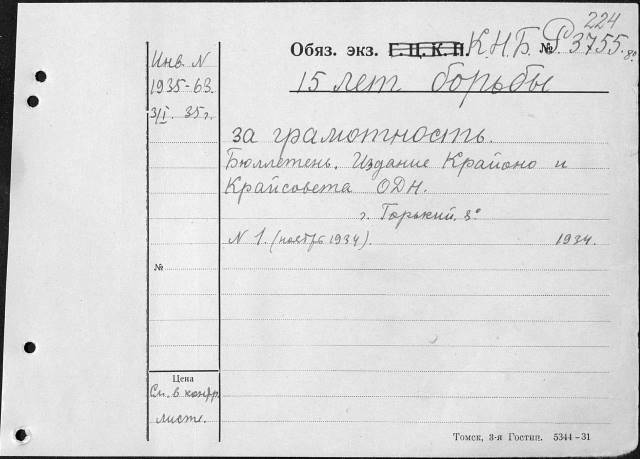 224
Обяз. экз. Г.Ц.К.П. К.Н.Б. № Р 3755. 8°
15 лет борьбы
Инв. N
1935-63.
3/I. 35 г.
за грамотность.
Бюллетень. Издание Крайоно и
Крайсовета ОДН.
г. Горький. 8°
N 1. (ноябрь 1934). 1934.
№
Цена
См. в контр.
листе.
Томск, 3-я Гостип. 5344-31